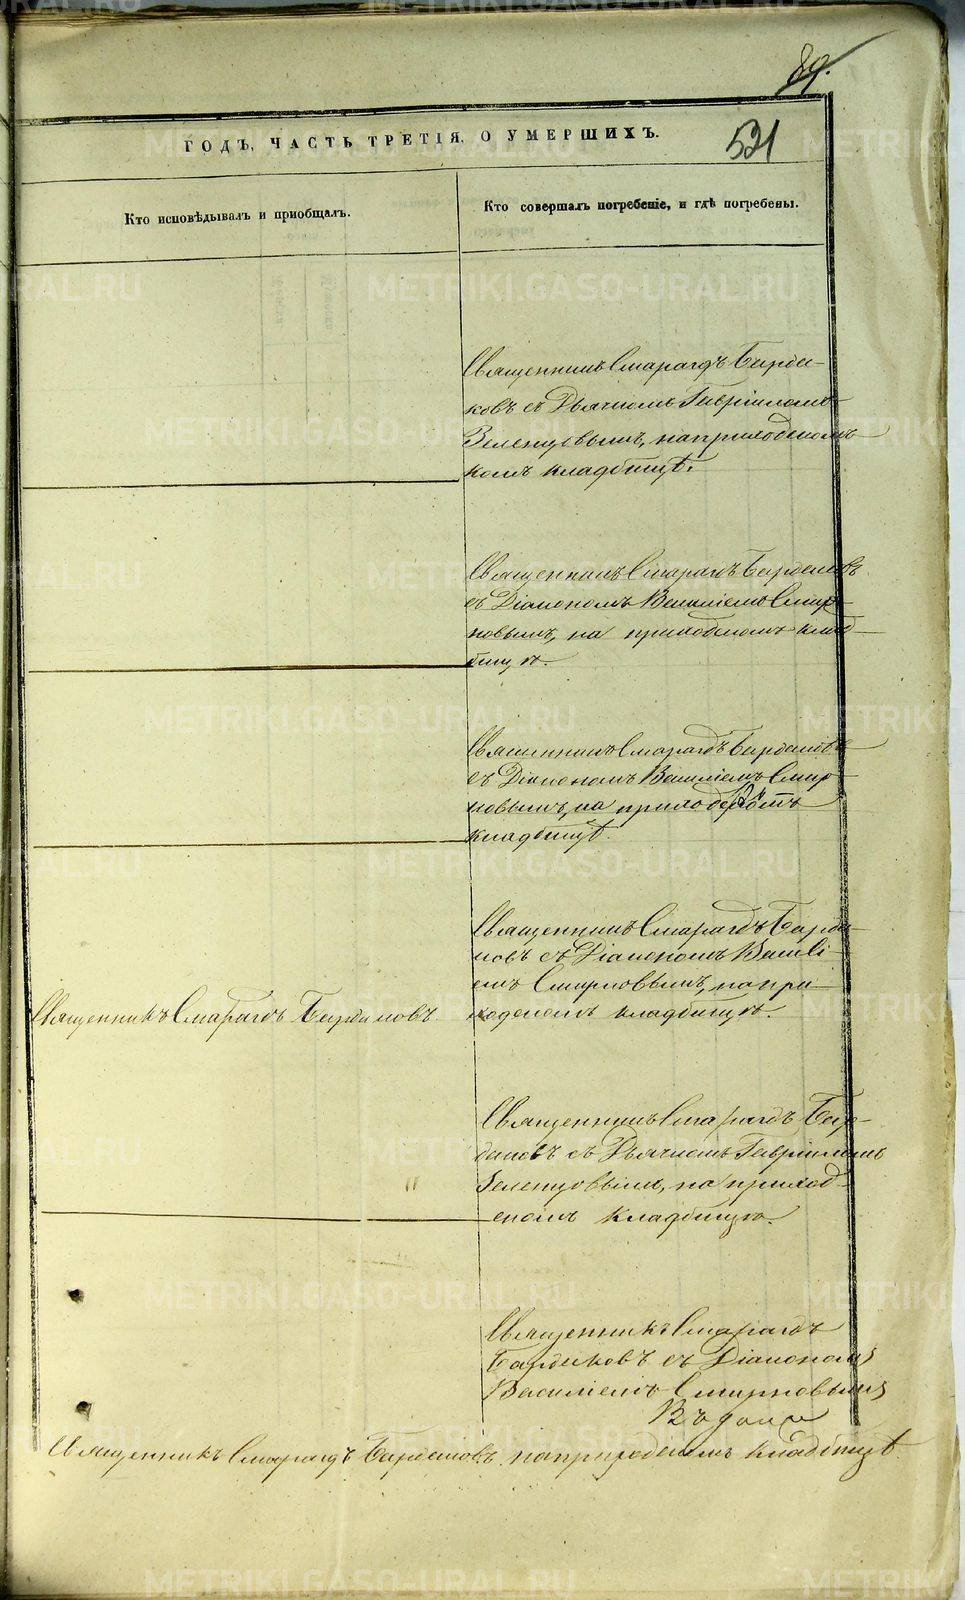 89.
521
ГОДЪ, ЧАСТЬ ТРЕТІЯ, О УМЕРШИХЪ.
Кто исповѣдывалъ и приобщалъ.
Кто совершалъ погребеніе, и гдѣ погребены.
Священникъ Смарагдъ
ковъ съ Дьячкомъ Гавріиломъ
Зеленцовымъ, на приходскомъ
комъ кладбищѣ.
Священникъ Смарагдъ
съ Діакономъ Василіемъ Смир
новымъ, на приходскомъ клад
бищѣ.
Священникъ Смарагдъ
съ Діакономъ Василіемъ Смир
новымъ, на
кладбищѣ.
Священникъ Смарагдъ
ковъ съ Діакономъ Василі
емъ Смирновымъ, на при
ходскомъ кладбищѣ.
Священникъ Смарагдъ
Священникъ Смарагдъ
съ Дьячкомъ Гавріиломъ
Зеленцовымъ, на приход
скомъ кладбищѣ.
Священникъ Смарагдъ
съ Діакономъ
Василіемъ Смирновымъ
Священникъ Смарагдъ
на приходскомъ кладбищѣ
METRIKI.GASO-URAL.RU